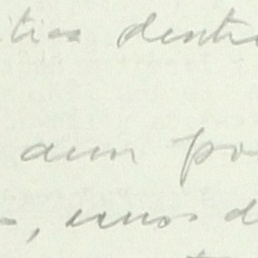 itica dentro
aun po
, unos d